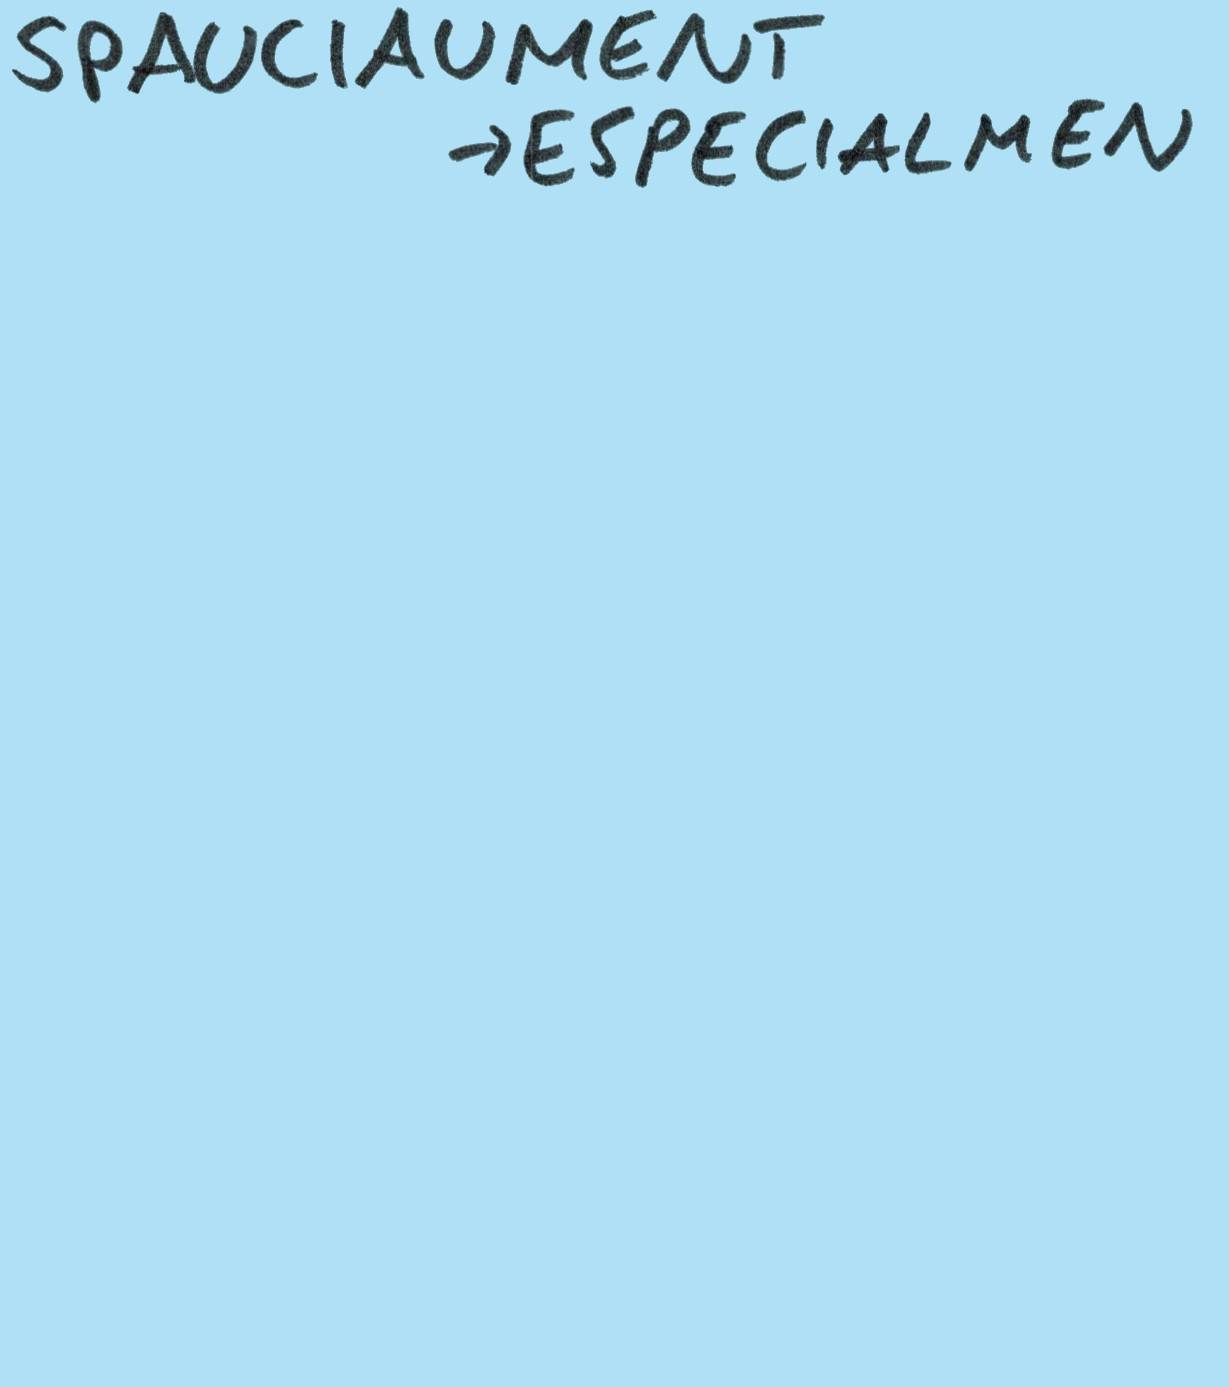 SPAUCIAUMENT
→ESPECIALMEN